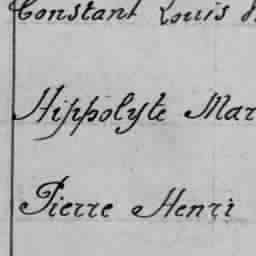 Constant Louis
Hippolyte Mar
Pierre Henri